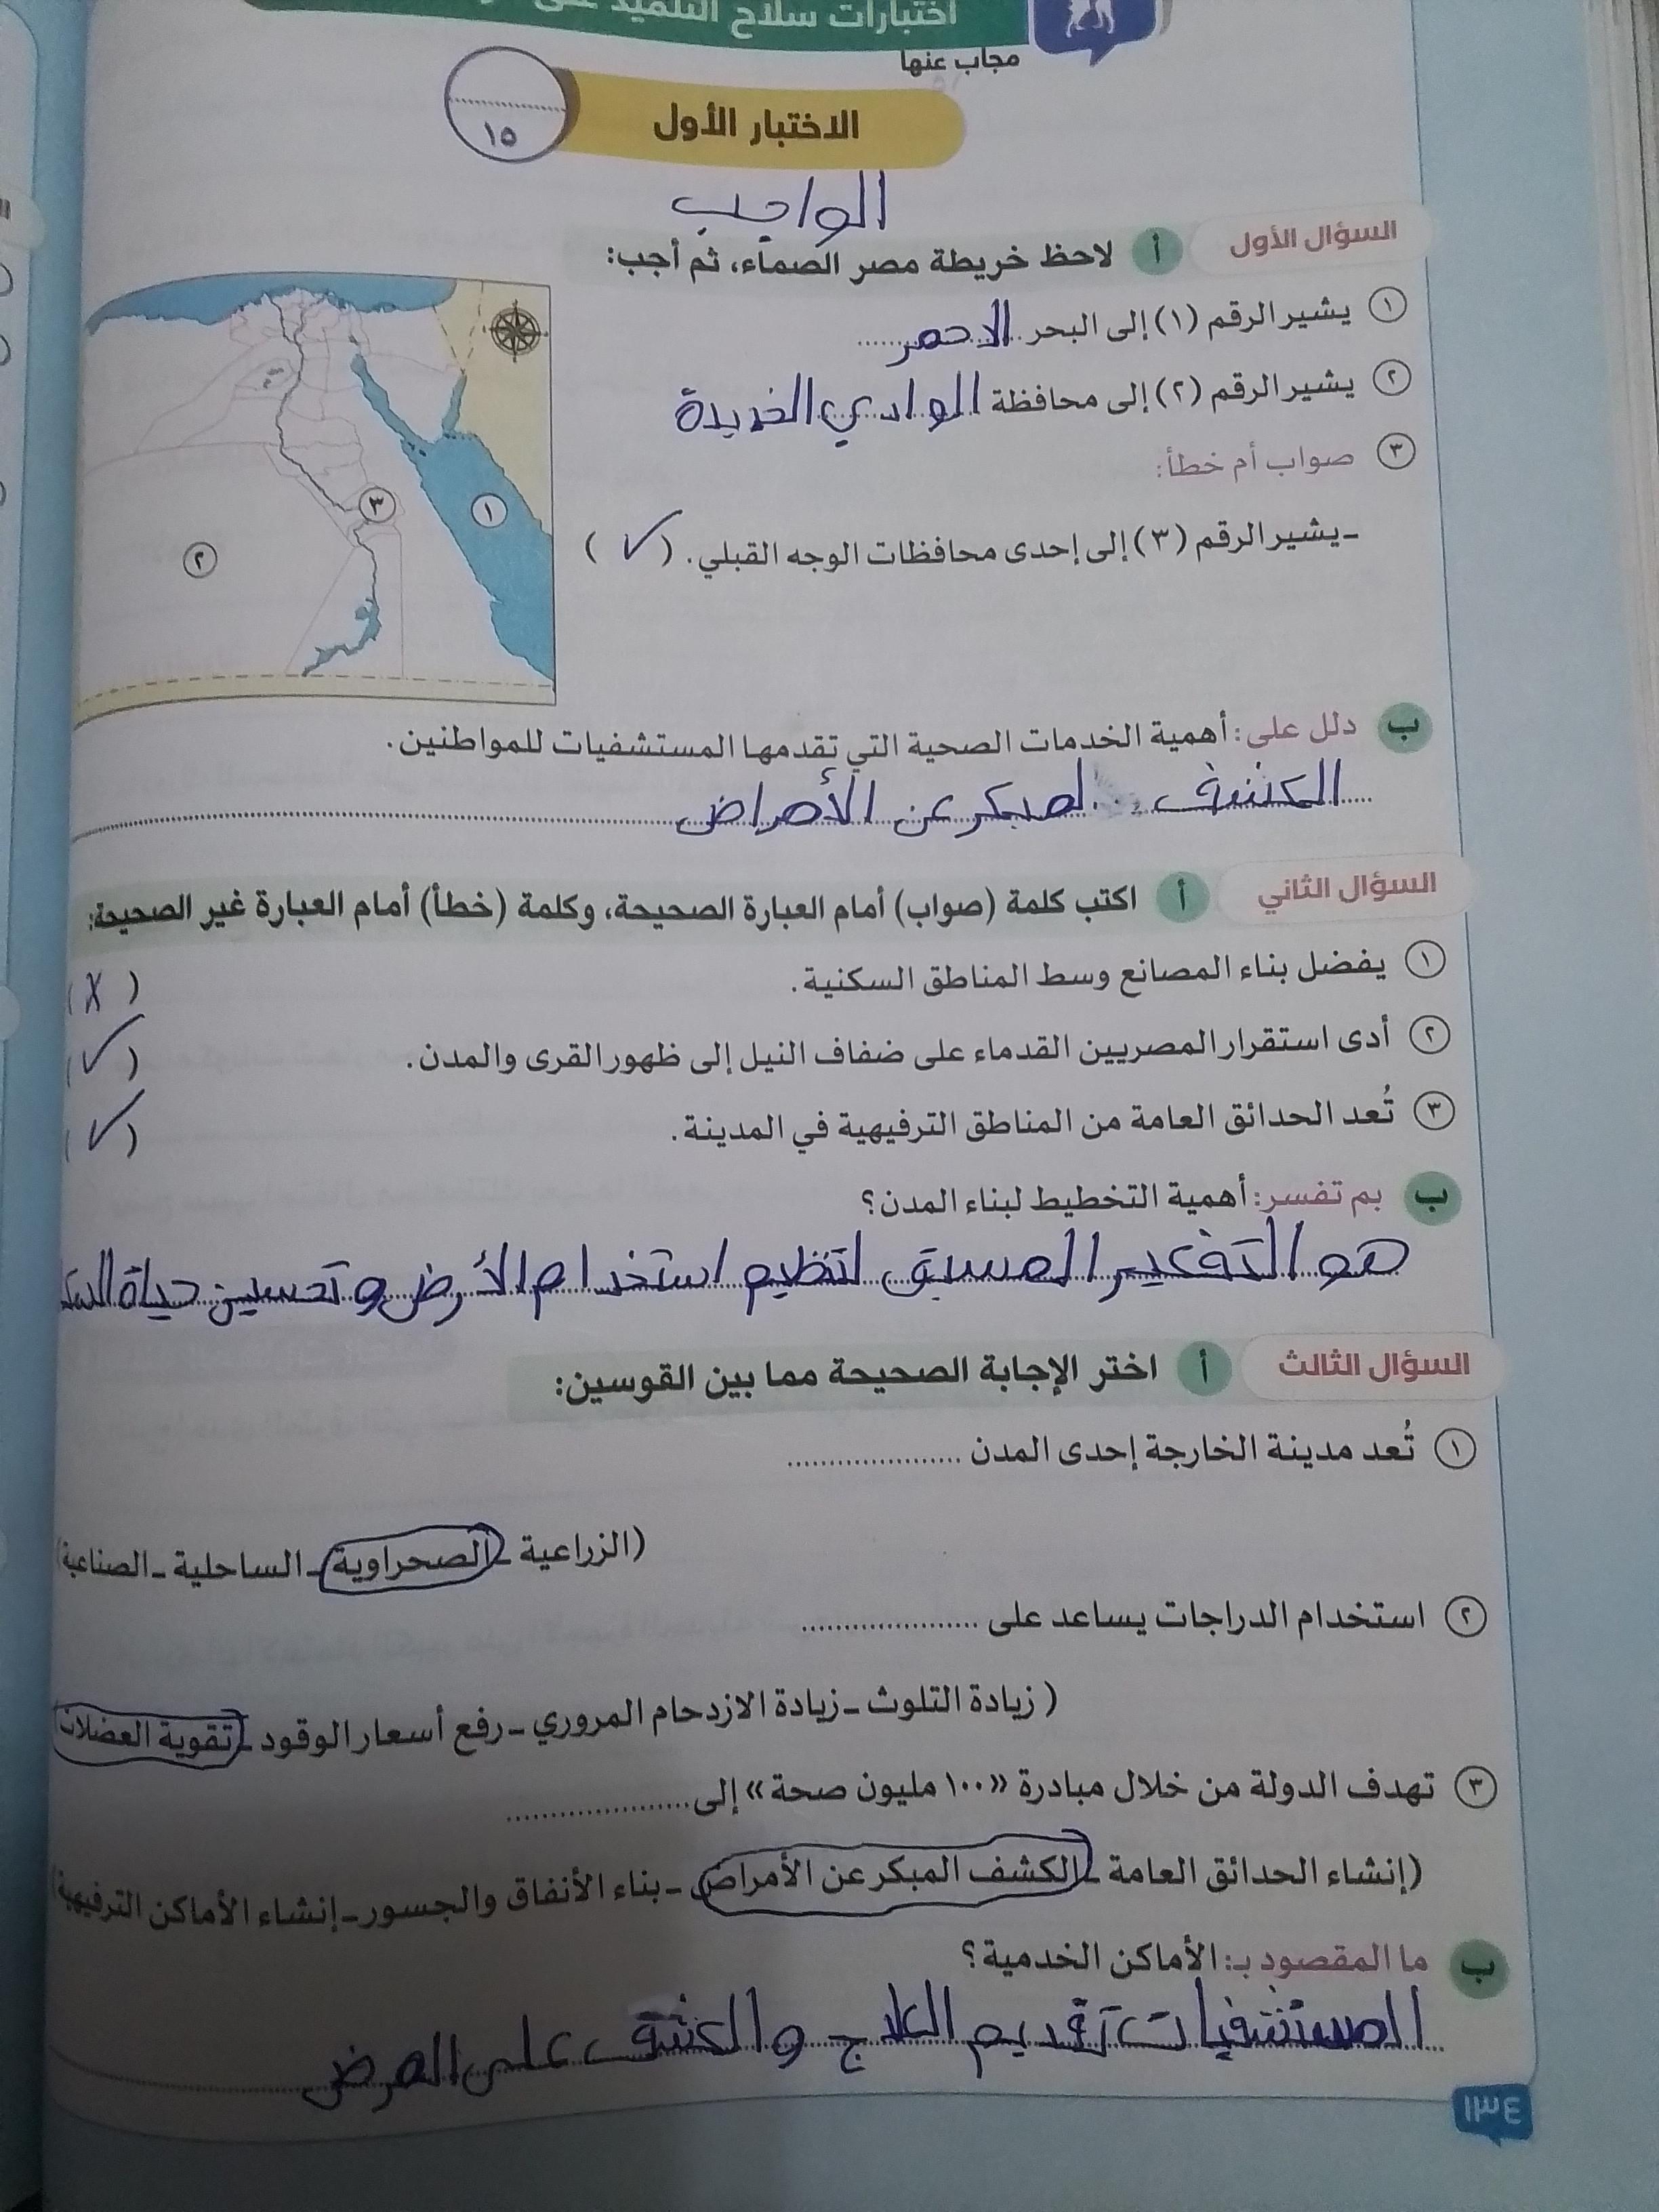 اختبارات سلاح التلميذ على
مجاب عنها
الاختبار الأول
١٥
الواجب
السؤال الأول أ لاحظ خريطة مصر الصماء، ثم أجب:
١ يشير الرقم (١) إلى البحر الاحمر
٢ يشير الرقم (٢) إلى محافظة الوادي الخديدة
٣ صواب أم خطأ:
ـ يشير الرقم (٣) إلى إحدى محافظات الوجه القبلي. (✓)
١
٢
٣
ب دلل على: أهمية الخدمات الصحية التي تقدمها المستشفيات للمواطنين.
الكشف لمبكر عن الأمراض
السؤال الثاني أ اكتب كلمة (صواب) أمام العبارة الصحيحة، وكلمة (خطأ) أمام العبارة غير الصحيحة:
١ يفضل بناء المصانع وسط المناطق السكنية. (X)
٢ أدى استقرار المصريين القدماء على ضفاف النيل إلى ظهور القرى والمدن. (✓)
٣ تُعد الحدائق العامة من المناطق الترفيهية في المدينة. (✓)
ب بم تفسر: أهمية التخطيط لبناء المدن؟
هو التفكير المسبق لتنظيم استخدام الأرض وتحسين حياة
السؤال الثالث أ اختر الإجابة الصحيحة مما بين القوسين:
١ تُعد مدينة الخارجة إحدى المدن ....................
(الزراعية ـ الصحراوية ـ الساحلية ـ الصناعية)
٢ استخدام الدراجات يساعد على ....................
( زيادة التلوث ـ زيادة الازدحام المروري ـ رفع أسعار الوقود ـ تقوية العضلات
٣ تهدف الدولة من خلال مبادرة «١٠٠ مليون صحة» إلى ....................
(إنشاء الحدائق العامة ـ الكشف المبكر عن الأمراض ـ بناء الأنفاق والجسور ـ إنشاء الأماكن الترفيهية)
ب ما المقصود بـ: الأماكن الخدمية؟
المستشفيات تقديم العلاج والكشف على المرض
١٣٤